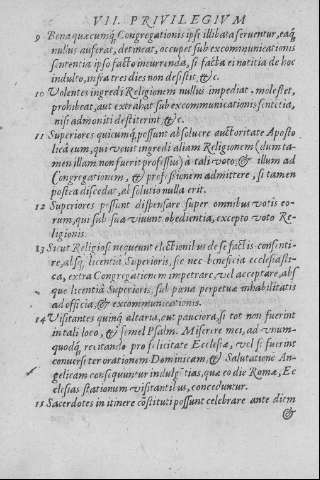 VII. PRIVILEGIVM
9 Bona quæcumq; Congregationis ipsi illibata seruentur, eaq;
nullus auferat, detineat, occupet sub excommunicationis
sententia ipso facto incurrenda, si facta ei notitia de hoc
indulto, infra tres dies non desistit, &c.
10 Volentes ingredi Religionem nullus impediat, molestet,
prohibeat, aut extrahat sub excommunicationis sentētia,
nisi admoniti destiterint, &c.
11 Superiores quicumq; possunt absoluere auctoritate Aposto
lica eum, qui vouit ingredi aliam Religionem (dum ta-
men illam non fuerit professus) à tali voto; & illum ad
Congregationem, & professionem admittere, si tamen
postea discedat, absolutio nulla erit.
12 Superiores possunt dispensare super omnibus votis eo-
rum, qui sub sua viuunt obedientia, excepto voto Re-
ligionis.
13 Sicut Religiosi nequeunt electionibus de se factis consenti-
re, absq; licentia Superioris, sic nec beneficia ecclesiasti-
ca, extra Congregationem impetrare, vel acceptare, abs
que licentia Superioris, sub pœna perpetuæ inhabilitatis
ad officia, & excommunicationis.
14 Visitantes quinq; altaria, aut pauciora, si tot non fuerint
in tali loco, & semel Psalm. Miserere mei, ad vnum-
quodq; recitando pro felicitate Ecclesiæ, vel si fuerint
conuersi ter orationem Dominicam, & Salutationē An-
gelicam consequuntur indulgētias, quæ eo die Romæ, Ec
clesias stationum visitantibus, conceduntur.
15 Sacerdotes in itinere cōstituti possunt celebrare ante diem
&